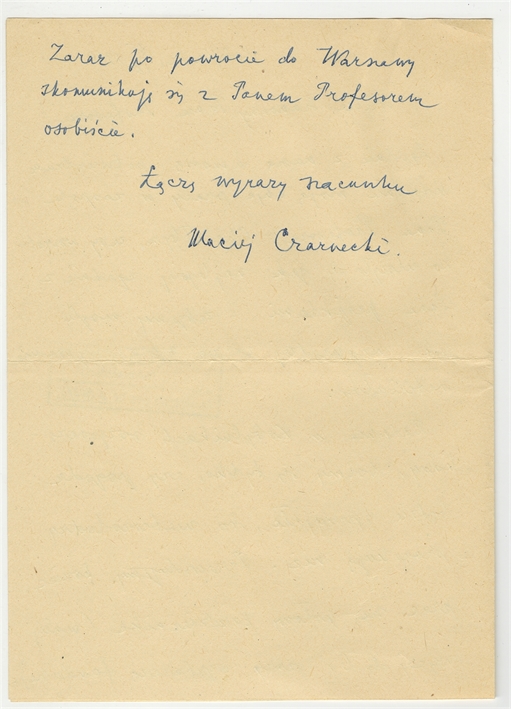 Zaraz po powrocie do Warszawy
skomunikuję się z Panem Profesorem
osobiście.
Łączę wyrazy szacunku
Maciej Czarnecki.